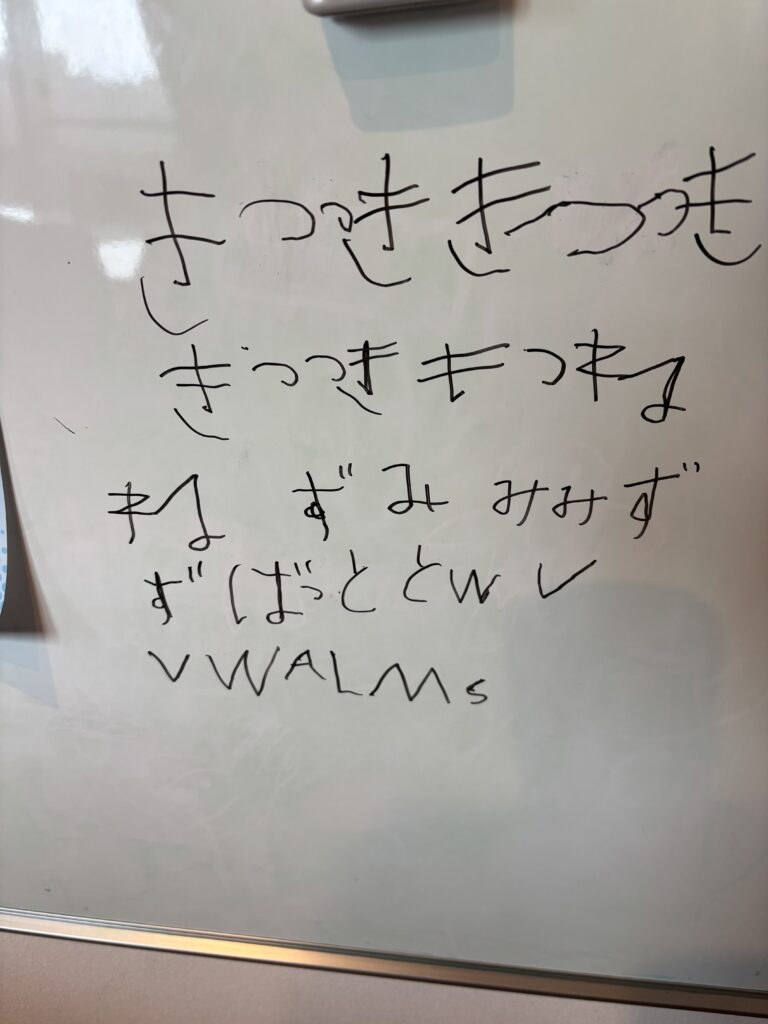 きつつき きつつき
きつつき キつね
ね ずみ みみず
ず しばっと とW V
VWALMs